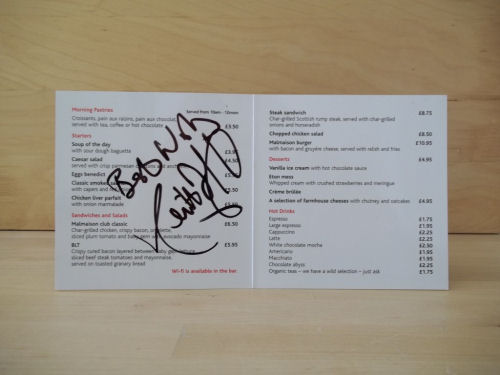 Morning Pastries Served from 10am - 12noon
Croissants, pain aux raisins, pain aux chocolat
served with tea, coffee or hot chocolate £3.50
Starters
Soup of the day
with sour dough baguette £3.95
Caesar salad
served with crisp parmesan
Eggs benedict
Classic smoked
with capers
Chicken liver parfait
with onion marmalade
Sandwiches and Salads
Malmaison club classic £6.50
Char-grilled chicken, crispy bacon,
sliced plum tomato and baby gem with avocado mayonnaise
BLT £5.95
Crispy cured bacon layered between baby gem lettuce
sliced beef steak tomatoes and mayonnaise.
served on toasted granary bread
Wi-fi is available in the bar
Best Wishes
Keith
Steak sandwich £8.75
Char-grilled Scottish rump steak, served with char-grilled
onions and horseradish
Chopped chicken salad £8.50
Malmaison burger £10.95
with bacon and gruyère cheese; served with relish and fries
Desserts £4.95
Vanilla ice cream with hot chocolate sauce
Eton mess
Whipped cream with crushed strawberries and meringue
Crème brûlée
A selection of farmhouse cheeses with chutney and oatcakes £4.95
Hot Drinks
Espresso £1.75
Large espresso £1.95
Cappuccino £2.25
Latte £2.25
White chocolate mocha £2.50
Americano £1.95
Macchiato £1.95
Chocolate abyss £2.25
Organic teas – we have a wild selection – just ask £1.75